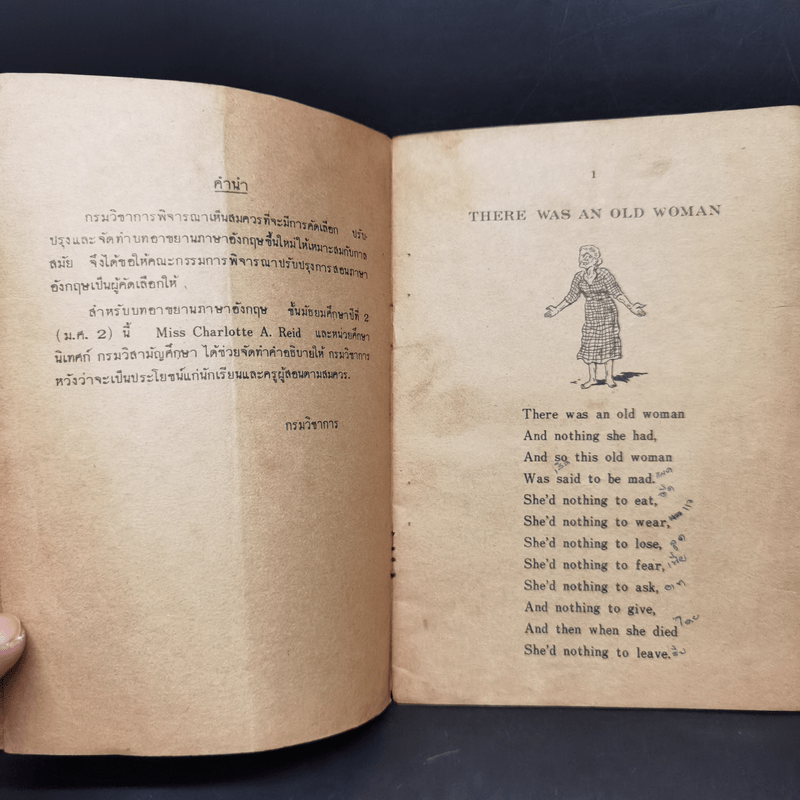 คำนำ
กรมวิชาการพิจารณาเห็นสมควรที่จะมีการคัดเลือก ปรับ-
ปรุงและจัดทำบทอาขยานภาษาอังกฤษขึ้นใหม่ให้เหมาะสมกับกาล
สมัย จึงได้ขอให้คณะกรรมการพิจารณาปรับปรุงการสอนภาษา
อังกฤษเป็นผู้คัดเลือกให้
สำหรับบทอาขยานภาษาอังกฤษ ชั้นมัธยมศึกษาปีที่ 2
(ม.ศ. 2) นี้ Miss Charlotte A. Reid และหน่วยศึกษา
นิเทศก์ กรมวิสามัญศึกษา ได้ช่วยจัดทำคำอธิบายให้ กรมวิชาการ
หวังว่าจะเป็นประโยชน์แก่นักเรียนและครูผู้สอนตามสมควร.
กรมวิชาการ
1
THERE WAS AN OLD WOMAN
There was an old woman
And nothing she had,
And so this old woman
Was said to be mad.
She'd nothing to eat,
She'd nothing to wear,
She'd nothing to lose,
She'd nothing to fear,
She'd nothing to ask,
And nothing to give,
And then when she died
She'd nothing to leave.